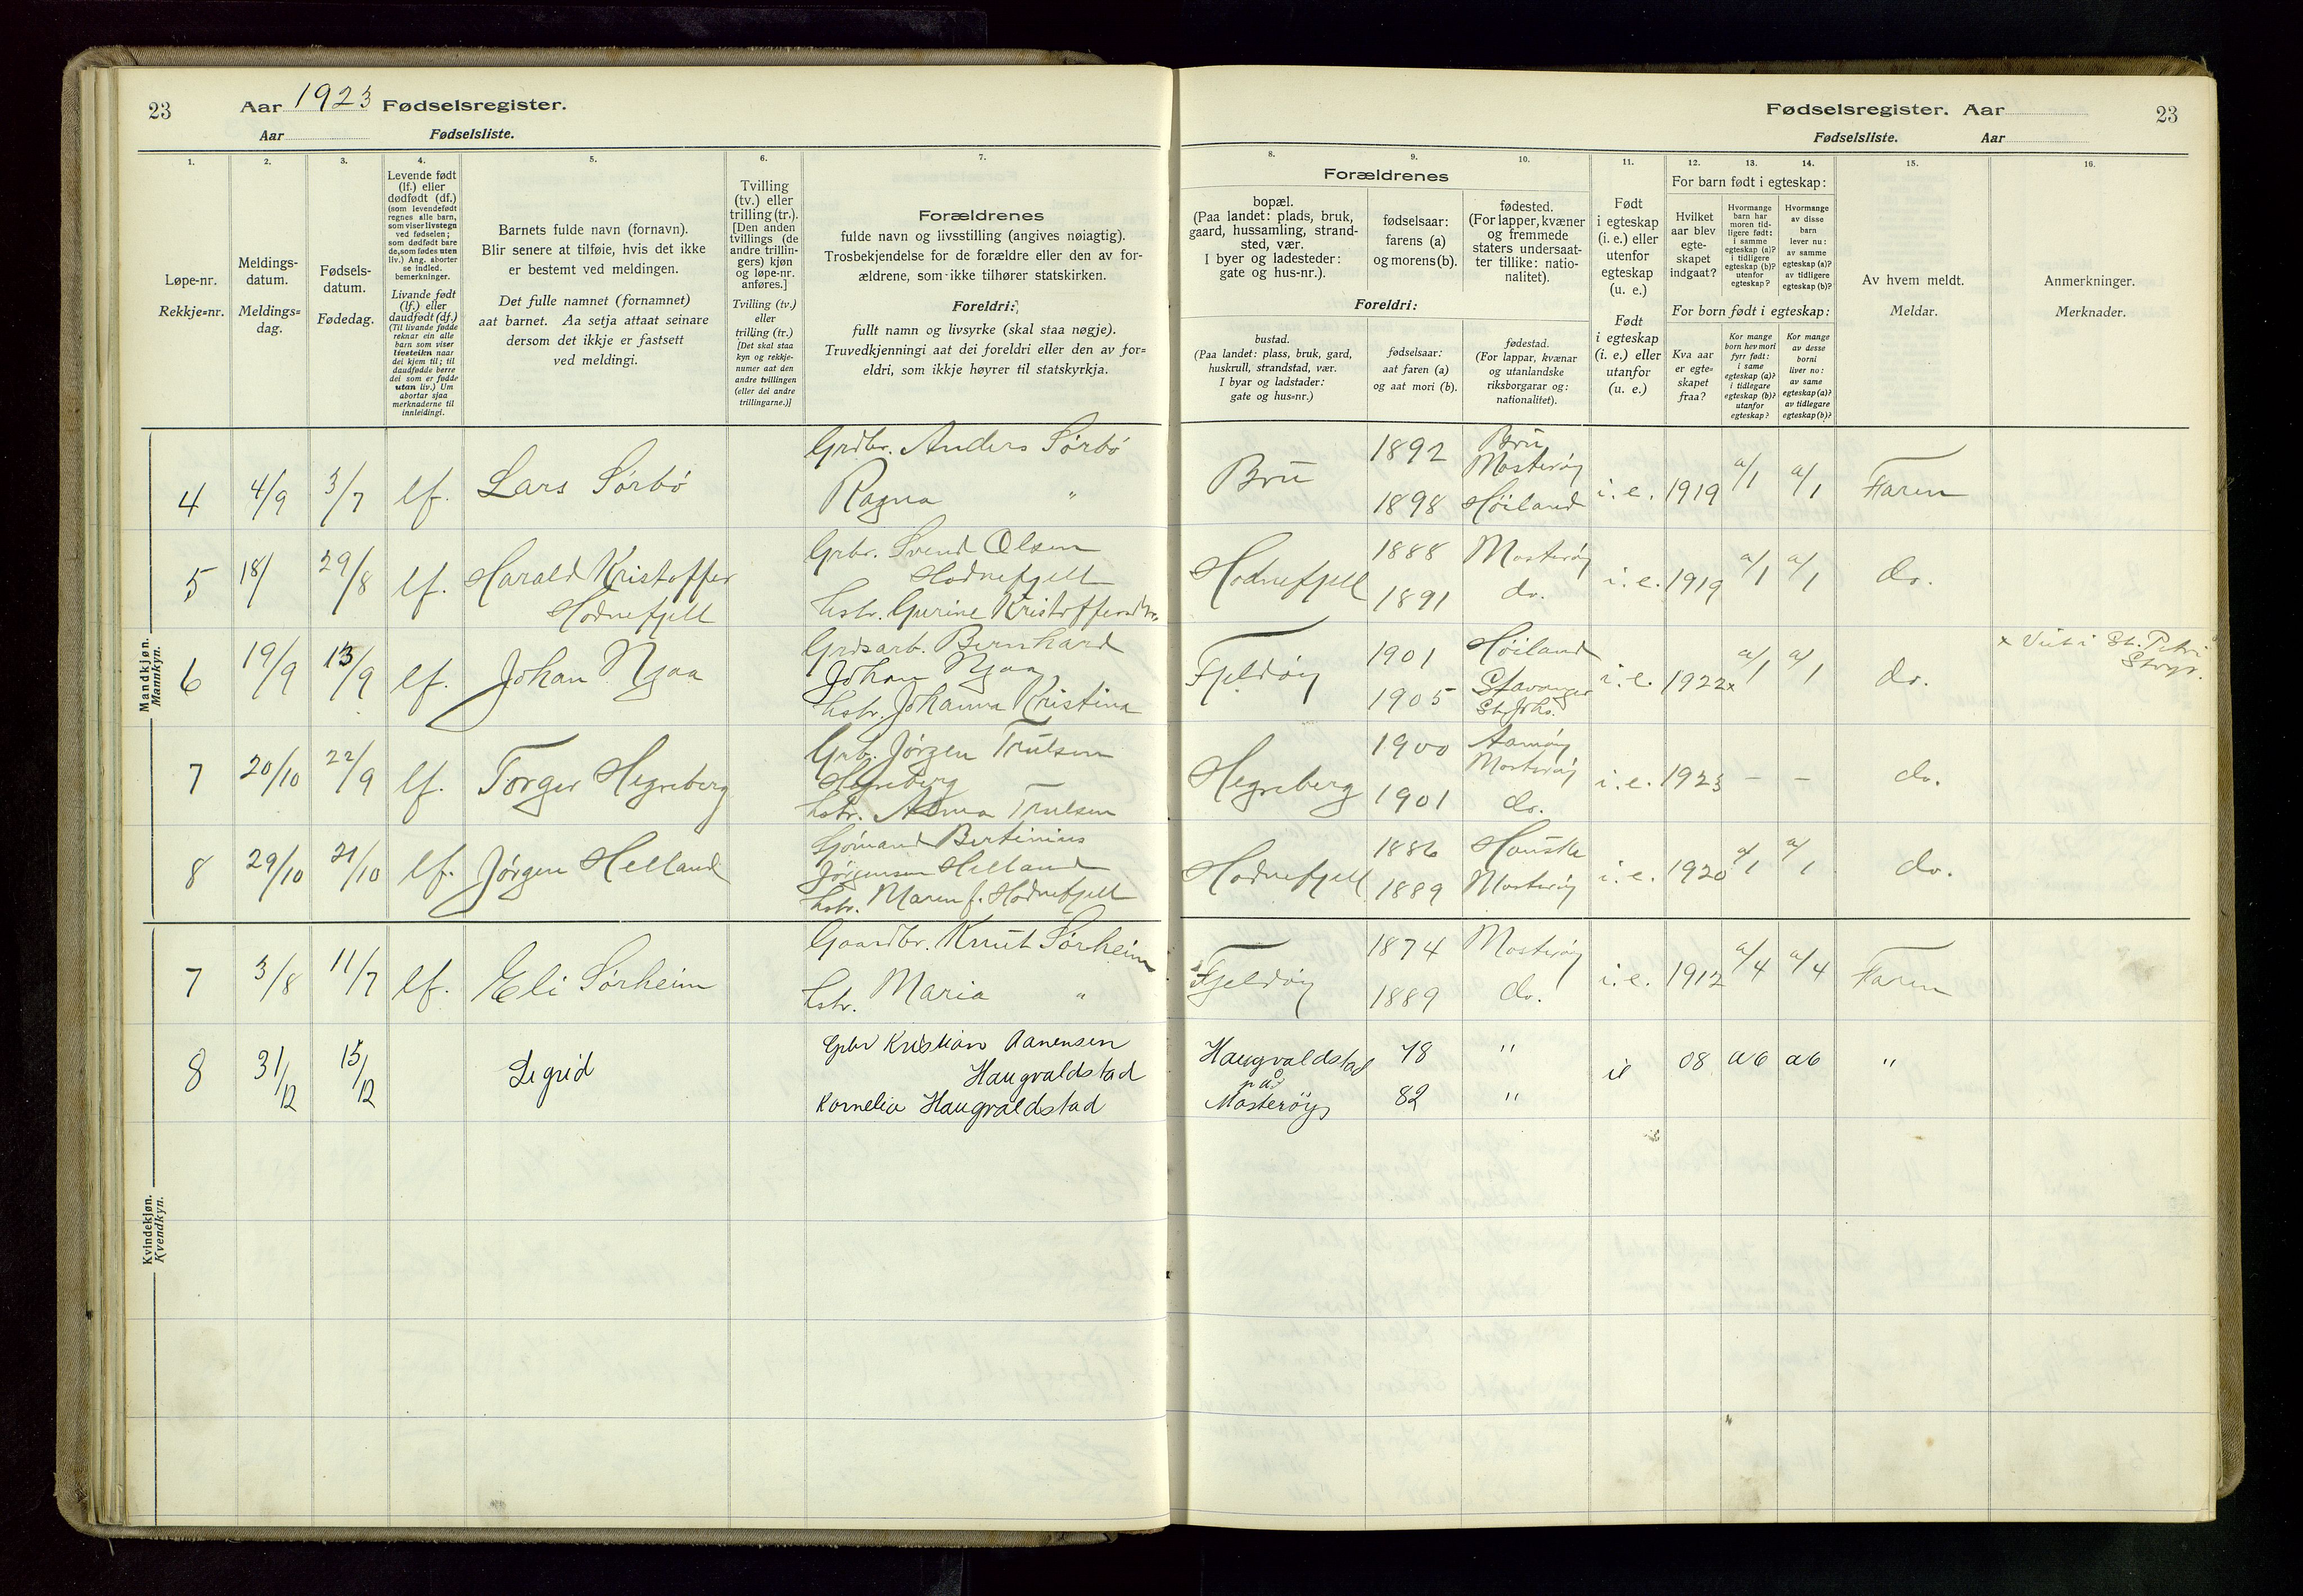 23
Aar 1923 Fødselsregister.
Aar Fødselsliste.
1.
2.
3.
4.
5.
6.
7.
Løpe-nr.
Rekkje=nr.
Meldings-
datum.
Meldings=
dag.
Fødsels-
datum.
Fødedag.
Levende født
(lf.) eller
dødfødt (df.)
(som levendefødt
regnes alle barn,
som viser livstegn
ved fødselen;
som dødfødt bare
de, som fødes uten
liv.) Ang. aborter
se indled.
bemerkninger.
Livande født
(lf.) eller
daudfødt (df.)
(Til livande fødde
reknar ein alle
barn som viser
livsteikn naar
dei kjem til; til
daudfødde berre
dei som er fødde
utan liv.) Um
abortar sjaa
merknaderne til
innleidingi.
Barnets fulde navn (fornavn).
Blir senere at tilføie, hvis det ikke
er bestemt ved meldingen.
Det fulle namnet (fornamnet)
aat barnet. Aa setja attaat seinare
dersom det ikkje er fastsett
ved meldingi.
Tvilling
(tv.) eller
trilling (tr.).
[Den anden
tvillings (de
andre trillin-
gers) kjøn
og løpe-nr.
anføres.]
Tvilling (tv.)
eller
trilling (tr.)
[Det skal staa
kyn og rekkje-
numer aat den
andre tvillingen
(eller dei andre
trillingarne.)]
Forældrenes
fulde navn og livsstilling (angives nøiagtig).
Trosbekjendelse for de forældre eller den av for-
ældrene, som ikke tilhører statskirken.
Foreldri:
fullt namn og livsyrke (skal staa nøgje).
Truvedkjenningi aat dei foreldri eller den av for=
eldri, som ikkje høyrer til statskyrkja.
Mandkjøn.
Mannkyn.
4 4/9 3/7 lf. Lars Sørbø
Grdbr. Anders Sørbø
Ragna "
5 18/ 29/8 lf. Harald Kristoffer
Hodnefjell
Grbr. Svend Olsen
Hodnefjell
hstr. Gurine Kristoffersdtr.
6 19/9 13/9 lf. Johan Njaa
Grdsarb. Bernhard
Johan Njaa
hstr. Johanna Kristina
7 20/10 22/9 lf. Torger Hegreberg
Grb. Jørgen Trulsen
Hegreberg
hstr. Anna Trulsen
8 29/10 21/10 lf. Jørgen Helland
Sjømand Bertinius
Jørgensen Helland
hstr. Maren f. Hodnefjell
Kvindekjøn.
Kvendkyn.
7 3/8 11/7 lf. Eli Sørheim
Gaardbr. Knut Sørheim
hstr. Maria "
8 31/12 15/12 Sigrid
Gbr Kristian Aanensen
Haugvaldstad
Kornelia Haugvaldstad
Fødselsregister. Aar
23
Fødselsliste. Aar
8.
9.
10.
11.
12.
13.
14.
15.
16.
Forældrenes
bopæl.
(Paa landet: plads, bruk,
gaard, hussamling, strand-
sted, vær.
I byer og ladesteder:
gate og hus-nr.).
fødselsaar:
farens (a)
og morens (b).
fødested.
(For lapper, kvæner
og fremmede
staters undersaat-
ter tillike: natio-
nalitet).
Foreldri:
bustad.
(Paa landet: plass, bruk, gard,
huskrull, strandstad, vær.
I byar og ladstader:
gate og hus=nr.)
fødselsaar:
aat faren (a)
og aat mori (b).
fødestad.
(For lappar, kvænar
og utanlandske
riksborgarar og:
nationalitet).
Født
i egteskap
(i. e.) eller
utenfor
egteskap
(u. e.)
Født
i egteskap
(i. e.) eller
utanfor
(u. e.)
For barn født i egteskap:
Hvilket
aar blev
egte-
skapet
indgaat?
Hvormange
barn har
moren tid-
ligere født:
i samme
egteskap (a)?
i tidligere
egteskap (b)?
utenfor
egteskap?
Hvormange
av disse
barn
lever nu:
av samme
egteskap (a)?
av tidligere
egteskap (b)?
For born født i egteskap:
Kva aar
er egte=
skapet
fraa?
Kor mange
born hev mori
fyrr født:
i same
egteskap (a)?
i tidlegare
egteskap (b)?
utanfor
egteskap?
Kor mange
av desse
borni
liver no:
av same
egteskap (a)?
av tidlegare
egteskap (b)?
Av hvem meldt.
Meldar.
Anmerkninger.
Merknader.
Bru 1892 Bru
Mosterøy
1898 Høiland i. e. 1919 a/1 a/1 Faren
Hodnefjell 1888 Mosterøy
1891 do. i. e. 1919 a/1 a/1 do.
Fjeldøy 1901 Høiland
1905 Stavanger
St. Johs. i. e. 1922x a/1 a/1 do.
x Viet i St. Petri
Hegreberg 1900 Aamøy
Mosterøy
1901 do. i. e. 1923 – – do.
Hodnefjell 1886 Hauske
1889 Mosterøy i. e. 1920 a/1 a/1 do.
Fjeldøy 1874 Mosterøy
1889 do. i. e. 1912 a/4 a/4 Faren
Haugvaldstad
på
Mosterøy 78 "
82 " ie 08 a6 a6 "